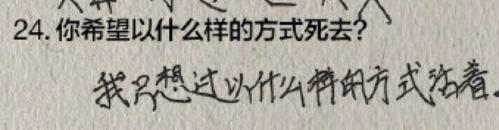 24. 你希望以什么样的方式死去?
我只想过以什么样的方式活着.